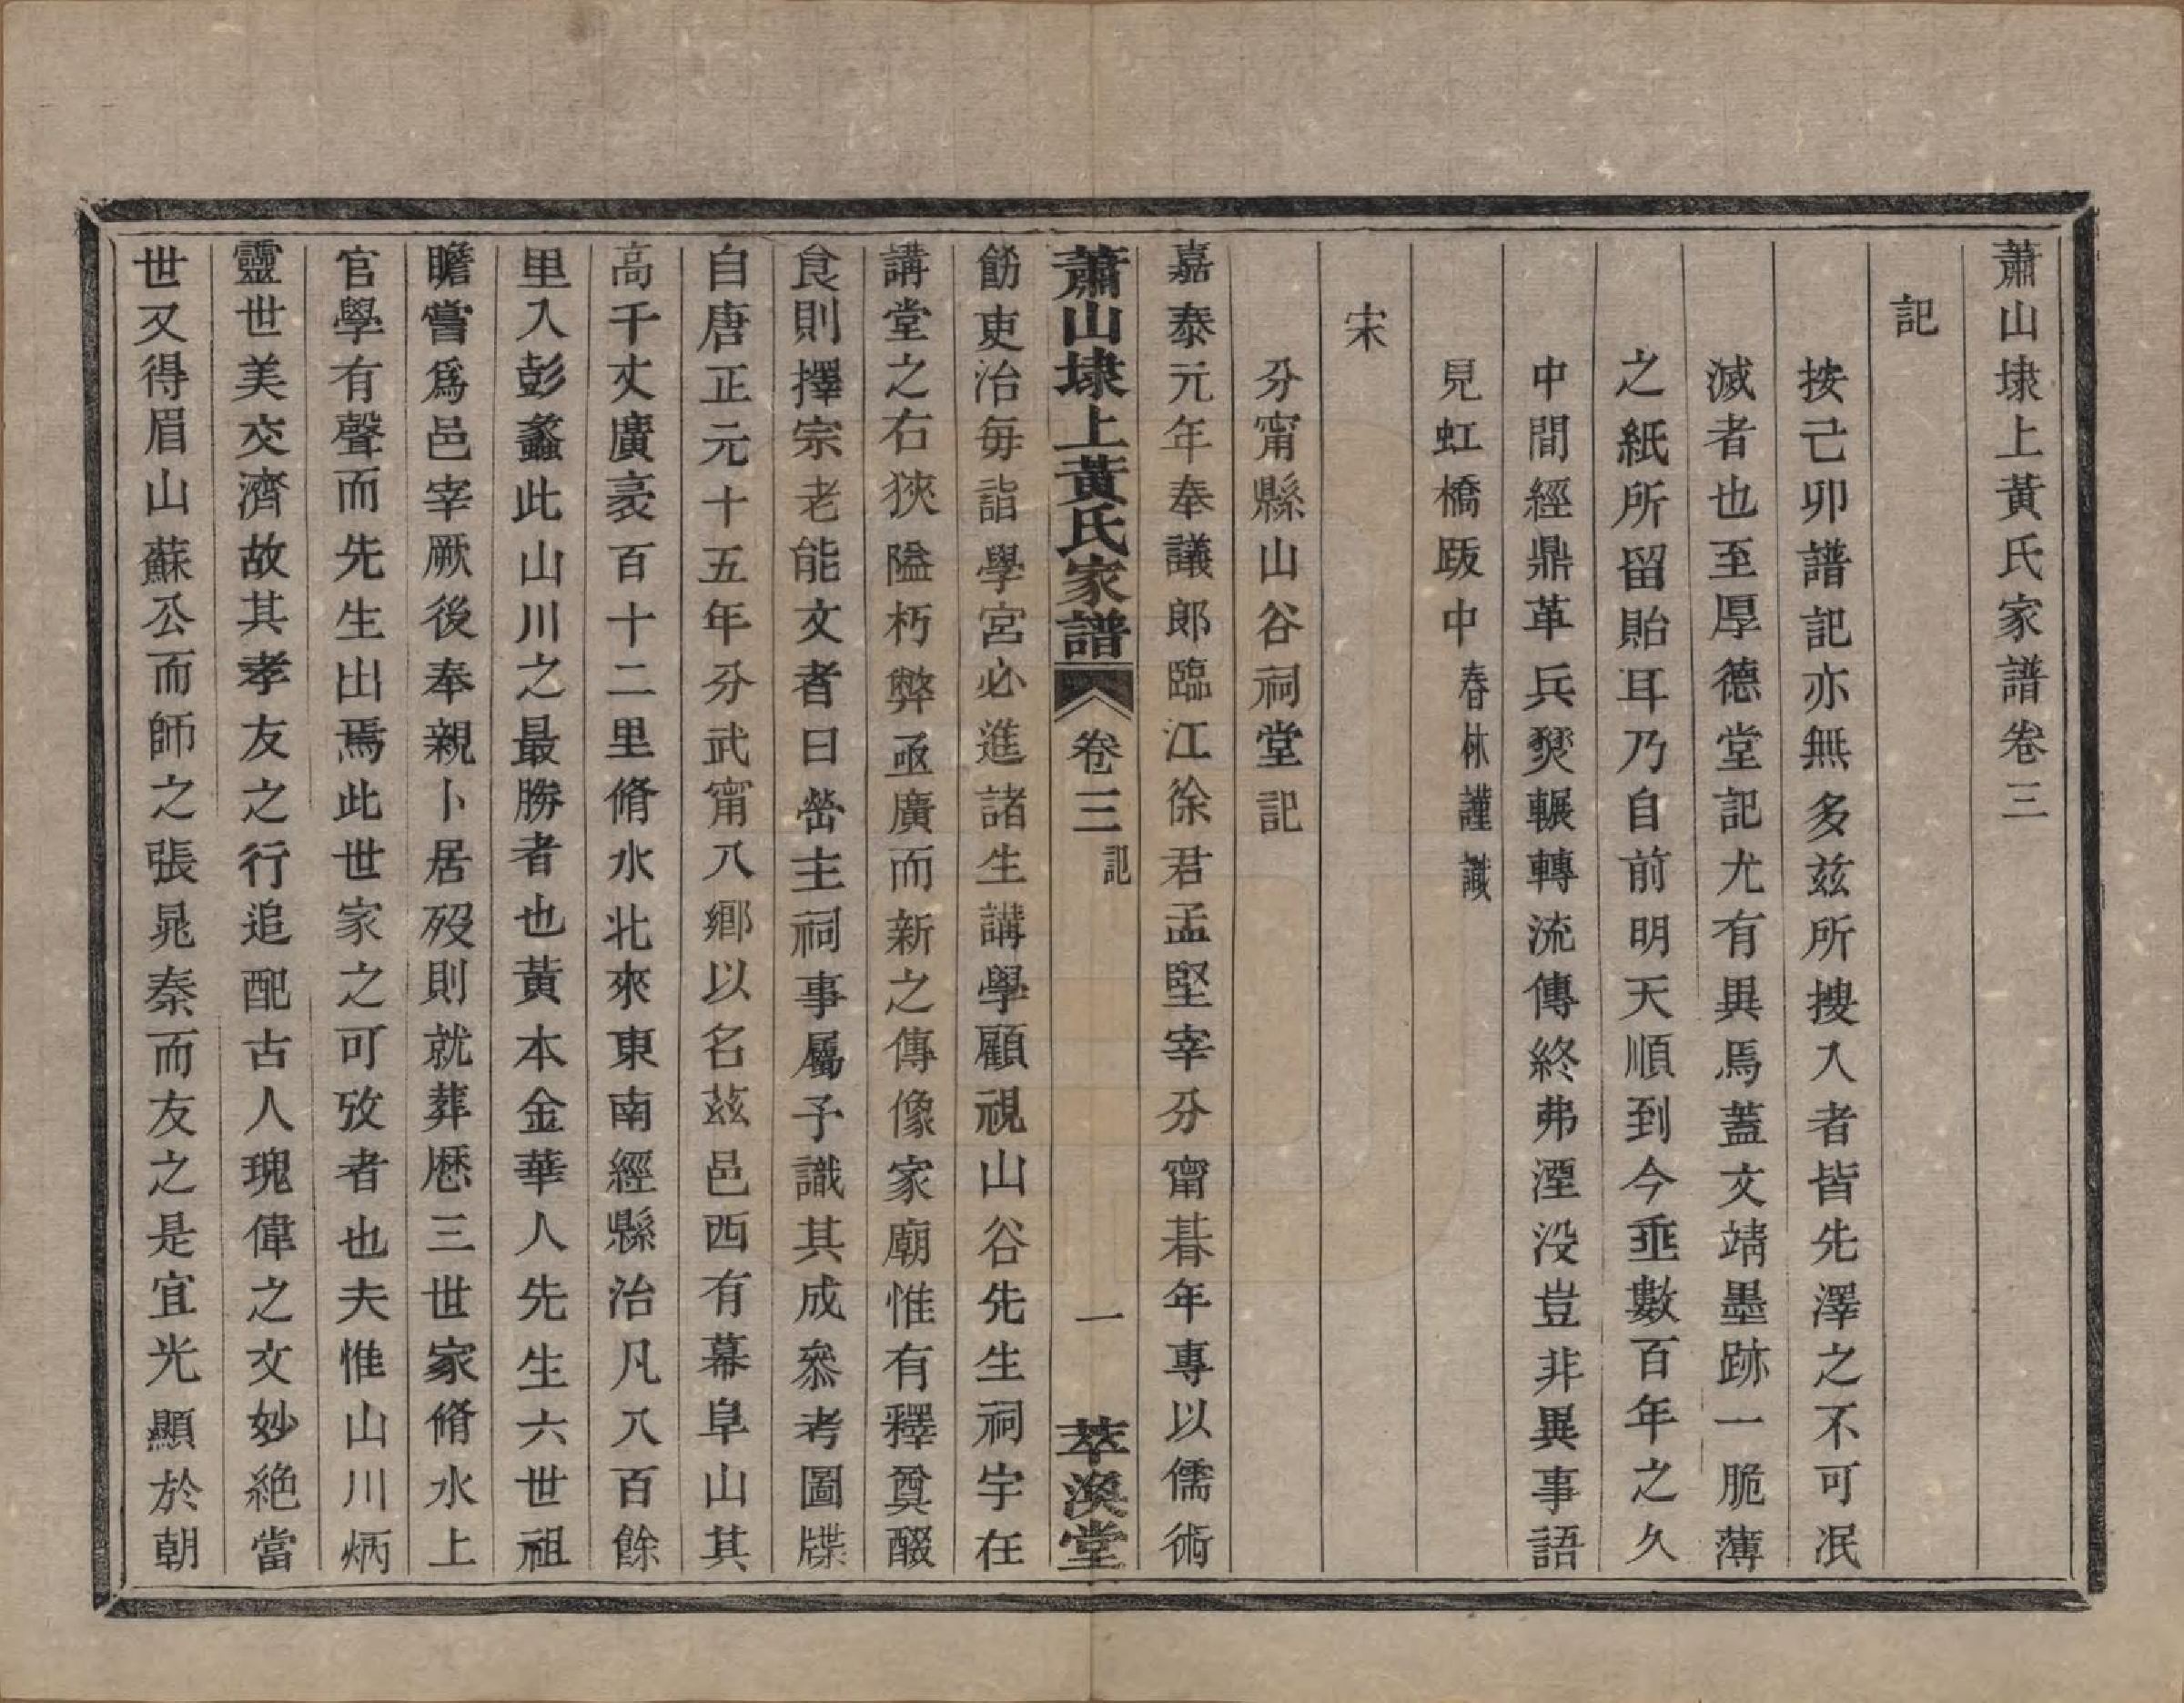 蕭山埭上黃氏家譜卷三
記
按己卯譜記亦無多茲所搜入者皆先澤之不可泯
滅者也至厚德堂記尤有異焉蓋文靖墨跡一脆薄
之紙所留貽耳乃自前明天順到今垂數百年之久
中間經鼎革兵燹輾轉流傳終弗湮没豈非異事語
見虹橋跋中春林謹識
宋
分甯縣山谷祠堂記
嘉泰元年奉議郎臨江徐君孟堅宰分甯朞年專以儒術
蕭山埭上黃氏家譜 卷三 記 一 萃渙堂
飭吏治每詣學宮必進諸生講學顧視山谷先生祠宇在
講堂之右狹隘朽弊亟廣而新之傳像家廟惟有釋奠醊
食則擇宗老能文者曰嵤主祠事屬予識其成叅考圖牒
自唐正元十五年分武甯八鄉以名茲邑西有幕阜山其
高千丈廣袤百十二里脩水北來東南經縣治凡八百餘
里入彭蠡此山川之最勝者也黃本金華人先生六世祖
瞻嘗爲邑宰厥後奉親卜居歿則就葬厯三世家脩水上
官學有聲而先生出焉此世家之可攷者也夫惟山川炳
靈世美交濟故其孝友之行追配古人瑰偉之文妙絶當
世又得眉山蘇公而師之張晁秦而友之是宜光顯於朝